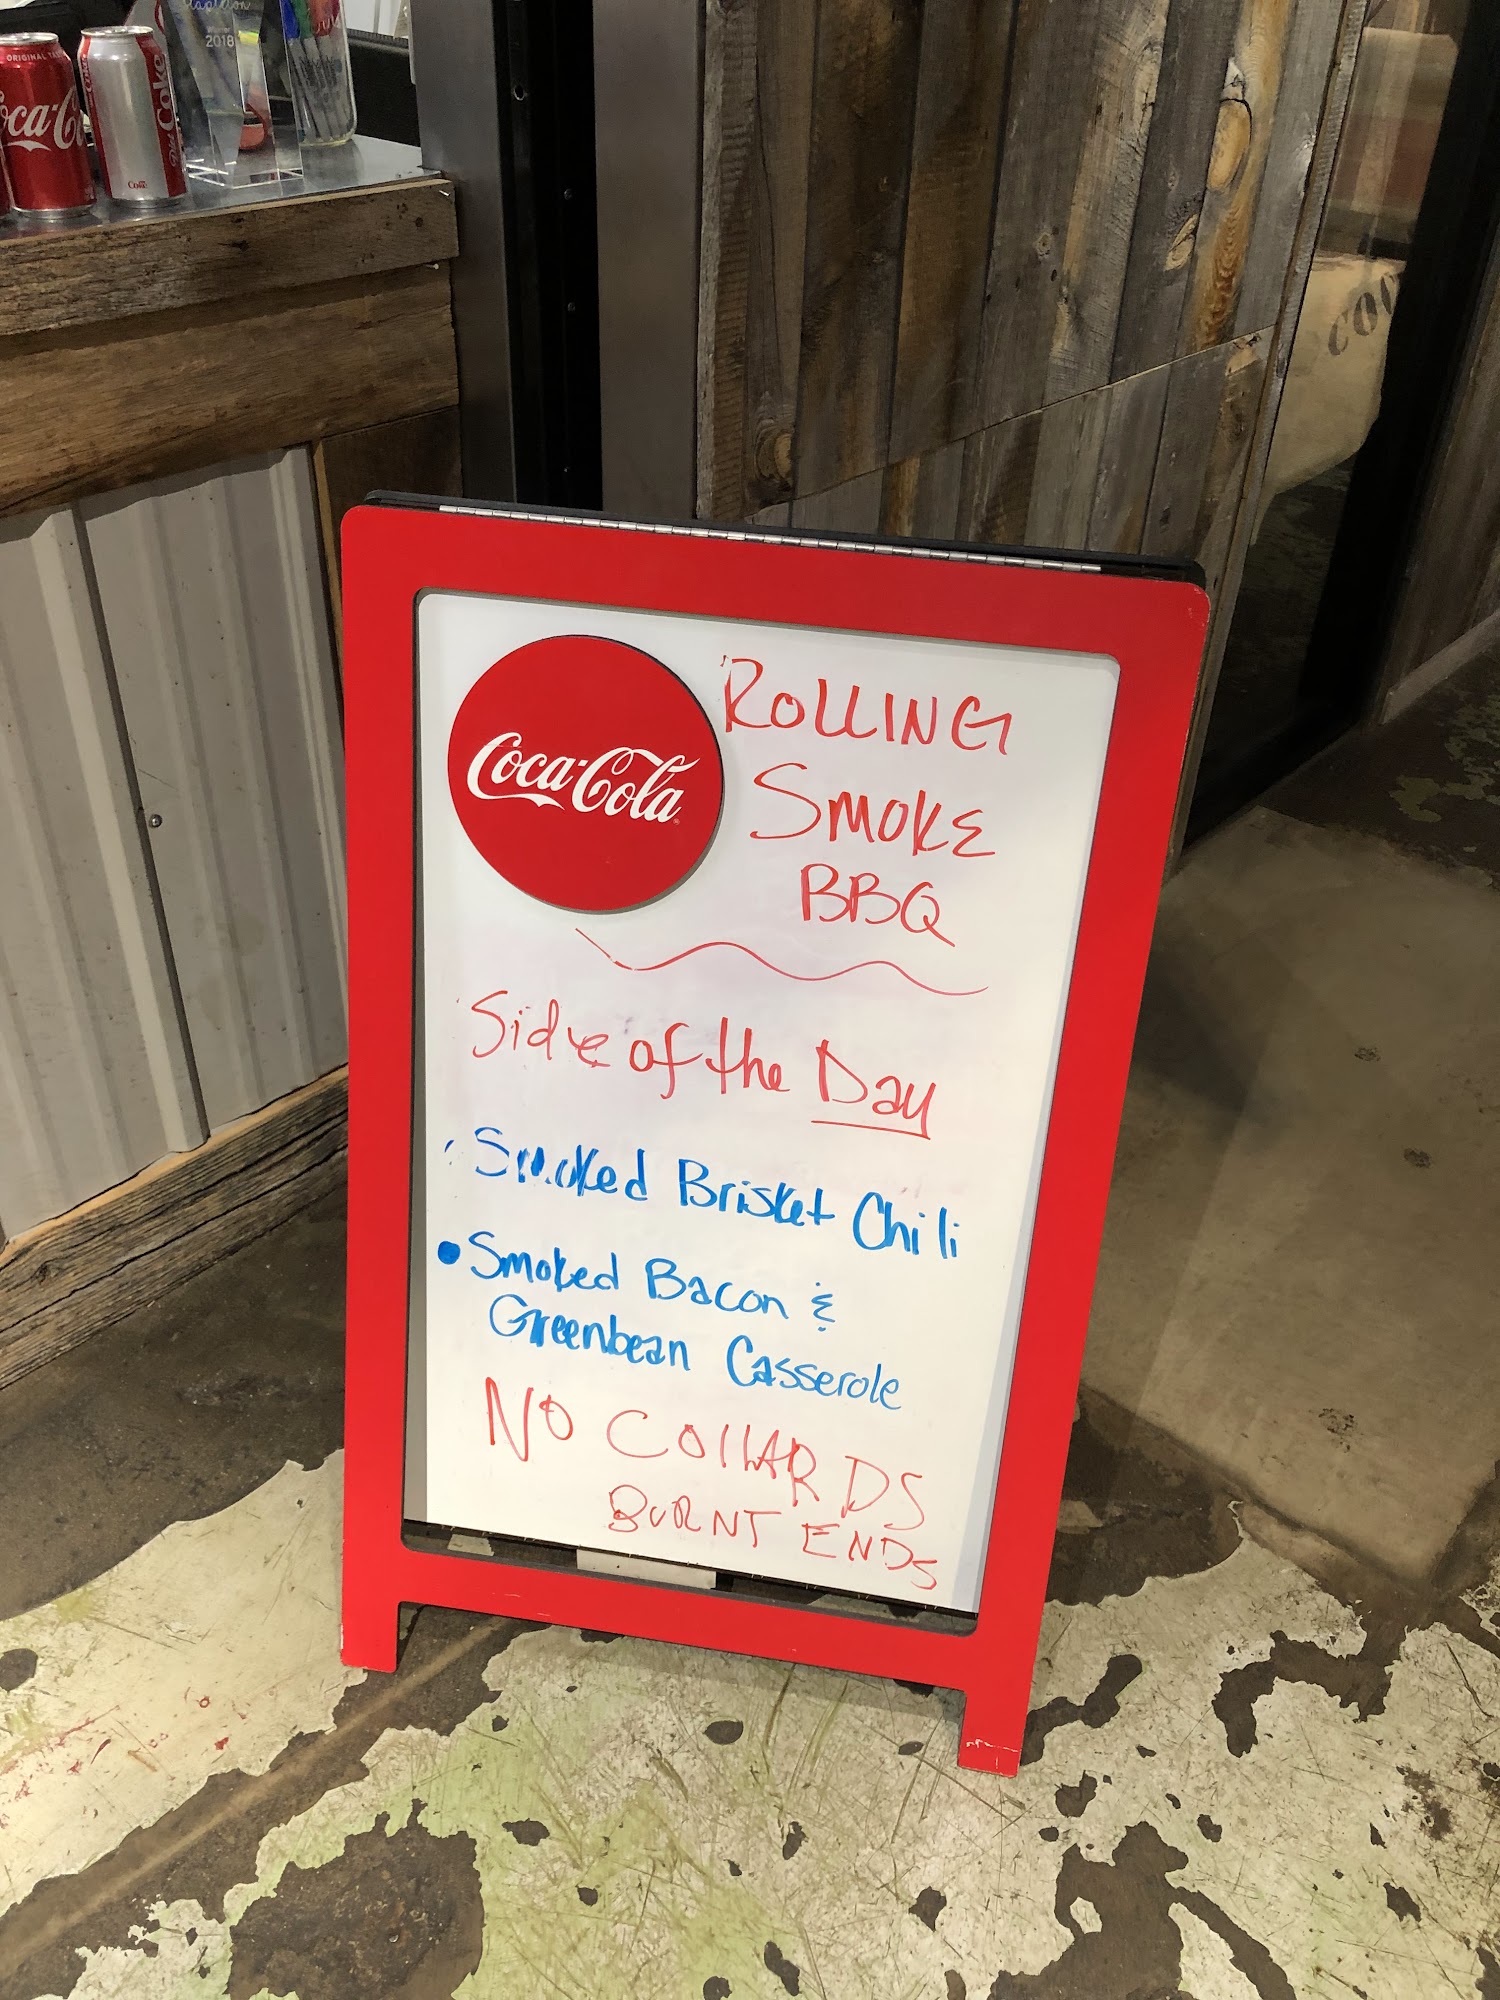 2018
ORIGINAL
Coca-Cola
Diet Coke
Coke
Coca-Cola
ROLLING
SMOKE
BBQ
Side of the Day
Smoked Brisket Chili
• Smoked Bacon &
Greenbean Casserole
NO COLLARDS
BURNT ENDS